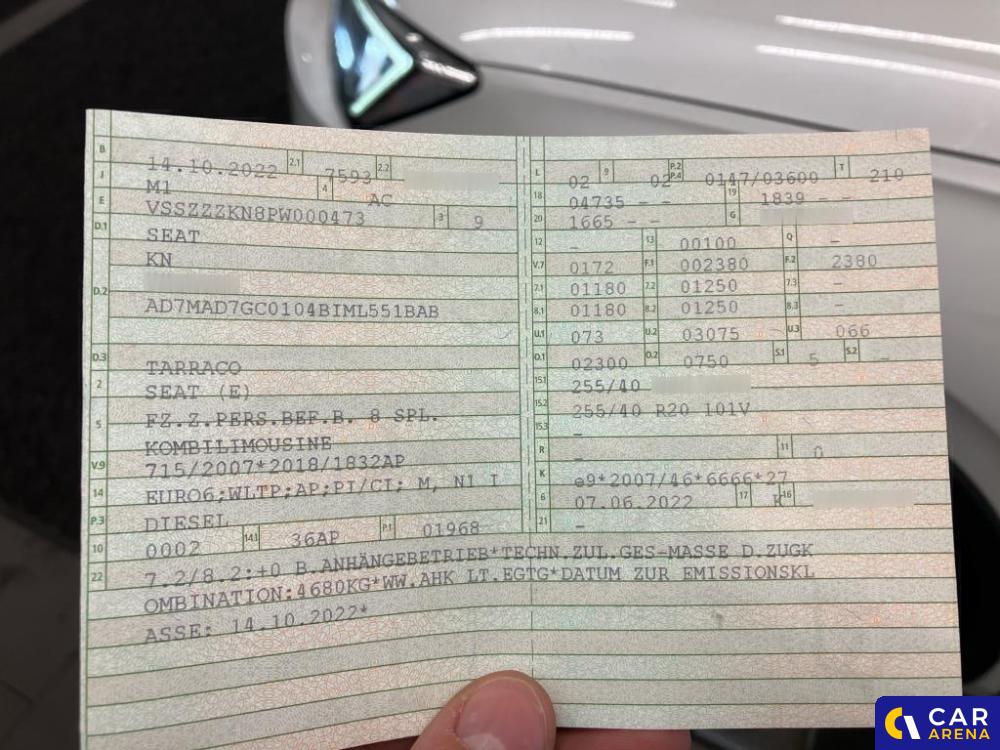 B 14.10.2022 2.1 7593 2.2
J M1 4 AC
E VSSZZZKN8PW000473 3 9
D.1 SEAT
KN
D.2
AD7MAD7GC0104BIML551BAB
D.3 TARRACO
2 SEAT (E)
5 FZ.Z.PERS.BEF.B. 8 SPL.
KOMBILIMOUSINE
V.9 715/2007*2018/1832AP
14 EURO6;WLTP;AP;PI/CI; M, N1 I
P.3 DIESEL
10 0002 14.1 36AP P.1 01968
L 02 9 02 P.2 P.4 0147/03600 T 210
18 04735 - - 19 1839 - -
20 1665 - - G
12 - 13 00100 Q -
V.7 0172 F.1 002380 F.2 2380
7.1 01180 7.2 01250 7.3 -
8.1 01180 8.2 01250 8.3 -
U.1 073 U.2 03075 U.3 066
O.1 02300 O.2 0750 S.1 5 S.2 -
15.1 255/40
15.2 255/40 R20 101V
15.3 -
R - 11 0
K e9*2007/46*6666*27
6 07.06.2022 17 K 16
21 -
22 7.2/8.2:+0 B.ANHÄNGEBETRIEB*TECHN.ZUL.GES-MASSE D.ZUGK
OMBINATION:4680KG*WW.AHK LT.EGTG*DATUM ZUR EMISSIONSKL
ASSE: 14.10.2022*
CAR
ARENA